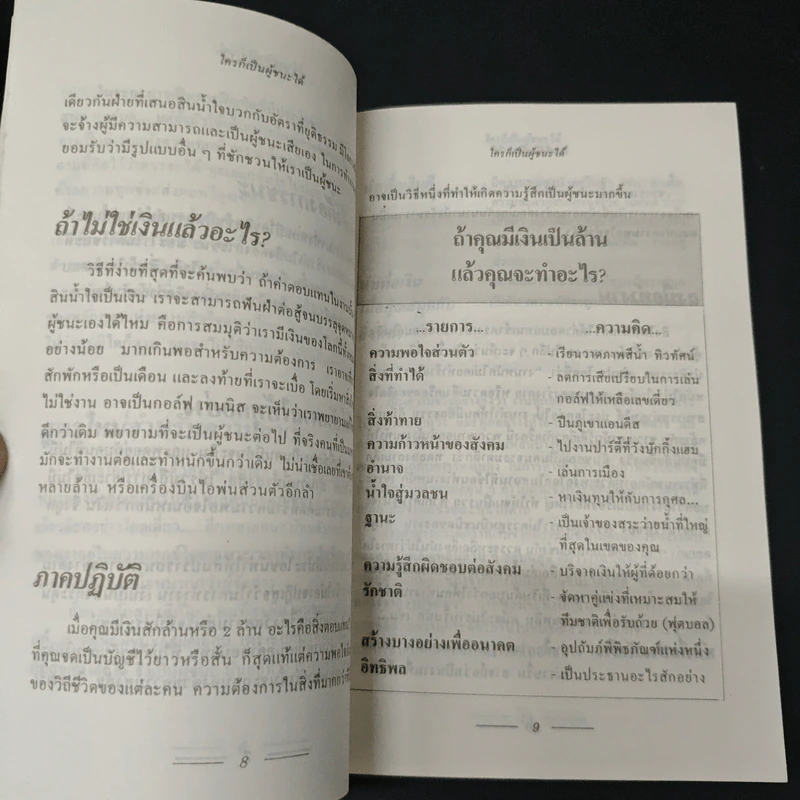 ใครก็เป็นผู้ชนะได้
เดียวกันฝ่ายที่เสนอสินน้ำใจบวกกับอัตราที่ยุติธรรม
จะจ้างผู้มีความสามารถและเป็นผู้ชนะเสียเอง ในการ
ยอมรับว่ามีรูปแบบอื่น ๆ ที่ชักชวนให้เราเป็นผู้ชนะ
ถ้าไม่ใช่เงินแล้วอะไร?
วิธีที่ง่ายที่สุดที่จะค้นพบว่า ถ้าค่าตอบแทนใน
สินน้ำใจเป็นเงิน เราจะสามารถฟันฝ่าต่อสู้จนบรรลุ
ผู้ชนะเองได้ไหม คือการสมมุติว่าเรามีเงินของโลกนี้
อย่างน้อย มากเกินพอสำหรับความต้องการ
สักพักหรือเป็นเดือน และลงท้ายที่เราจะเบื่อ
ไม่ใช่งาน อาจเป็นกอล์ฟ เทนนิส จะเห็นว่าเราพยายาม
ดีกว่าเดิม พยายามที่จะเป็นผู้ชนะต่อไป ที่จริงคนที่เป็น
มักจะทำงานต่อและทำหนักขึ้นกว่าเดิม ไม่น่าเชื่อเลยที่
หลายล้าน หรือเครื่องบินไอพ่นส่วนตัวอีกลำ
ภาคปฏิบัติ
เมื่อคุณมีเงินสักล้านหรือ 2 ล้าน อะไรคือสิ่งตอบแทน
ที่คุณจดเป็นบัญชีไว้ยาวหรือสั้น ก็สุดแท้แต่ความพอ
ของวิถีชีวิตของแต่ละคน ความต้องการในสิ่งที่มากกว่า
8
ใครก็เป็นผู้ชนะได้
อาจเป็นวิธีหนึ่งที่ทำให้เกิดความรู้สึกเป็นผู้ชนะมากขึ้น
ถ้าคุณมีเงินเป็นล้าน
แล้วคุณจะทำอะไร?
...รายการ... ...ความคิด...
ความพอใจส่วนตัว - เรียนวาดภาพสีน้ำ ทิวทัศน์
สิ่งที่ทำได้ - ลดการเสียเปรียบในการเล่น
กอล์ฟให้เหลือเลขเดี่ยว
สิ่งท้าทาย - ปีนภูเขาแอนดีส
ความก้าวหน้าของสังคม - ไปงานปาร์ตี้ที่วังบักกิ้งแฮม
อำนาจ - เล่นการเมือง
น้ำใจสู่มวลชน - หาเงินทุนให้กับการกุศล...
ฐานะ - เป็นเจ้าของสระว่ายน้ำที่ใหญ่
ที่สุดในเขตของคุณ
ความรู้สึกผิดชอบต่อสังคม - บริจาคเงินให้ผู้ที่ด้อยกว่า
รักชาติ - จัดหาคู่แข่งที่เหมาะสมให้
ทีมชาติเพื่อรับถ้วย (ฟุตบอล)
สร้างบางอย่างเพื่ออนาคต - อุปถัมภ์พิพิธภัณฑ์แห่งหนึ่ง
อิทธิพล - เป็นประธานอะไรสักอย่าง
9